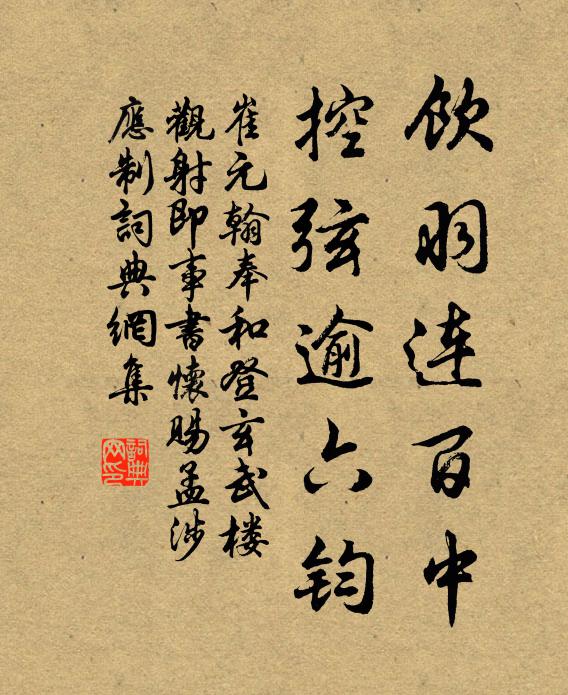 飲羽连百中
控弦逾六钧
崔元翰奉和登玄武楼
觀射即事書懷賜孟涉
應制詞典網集
詞典网印